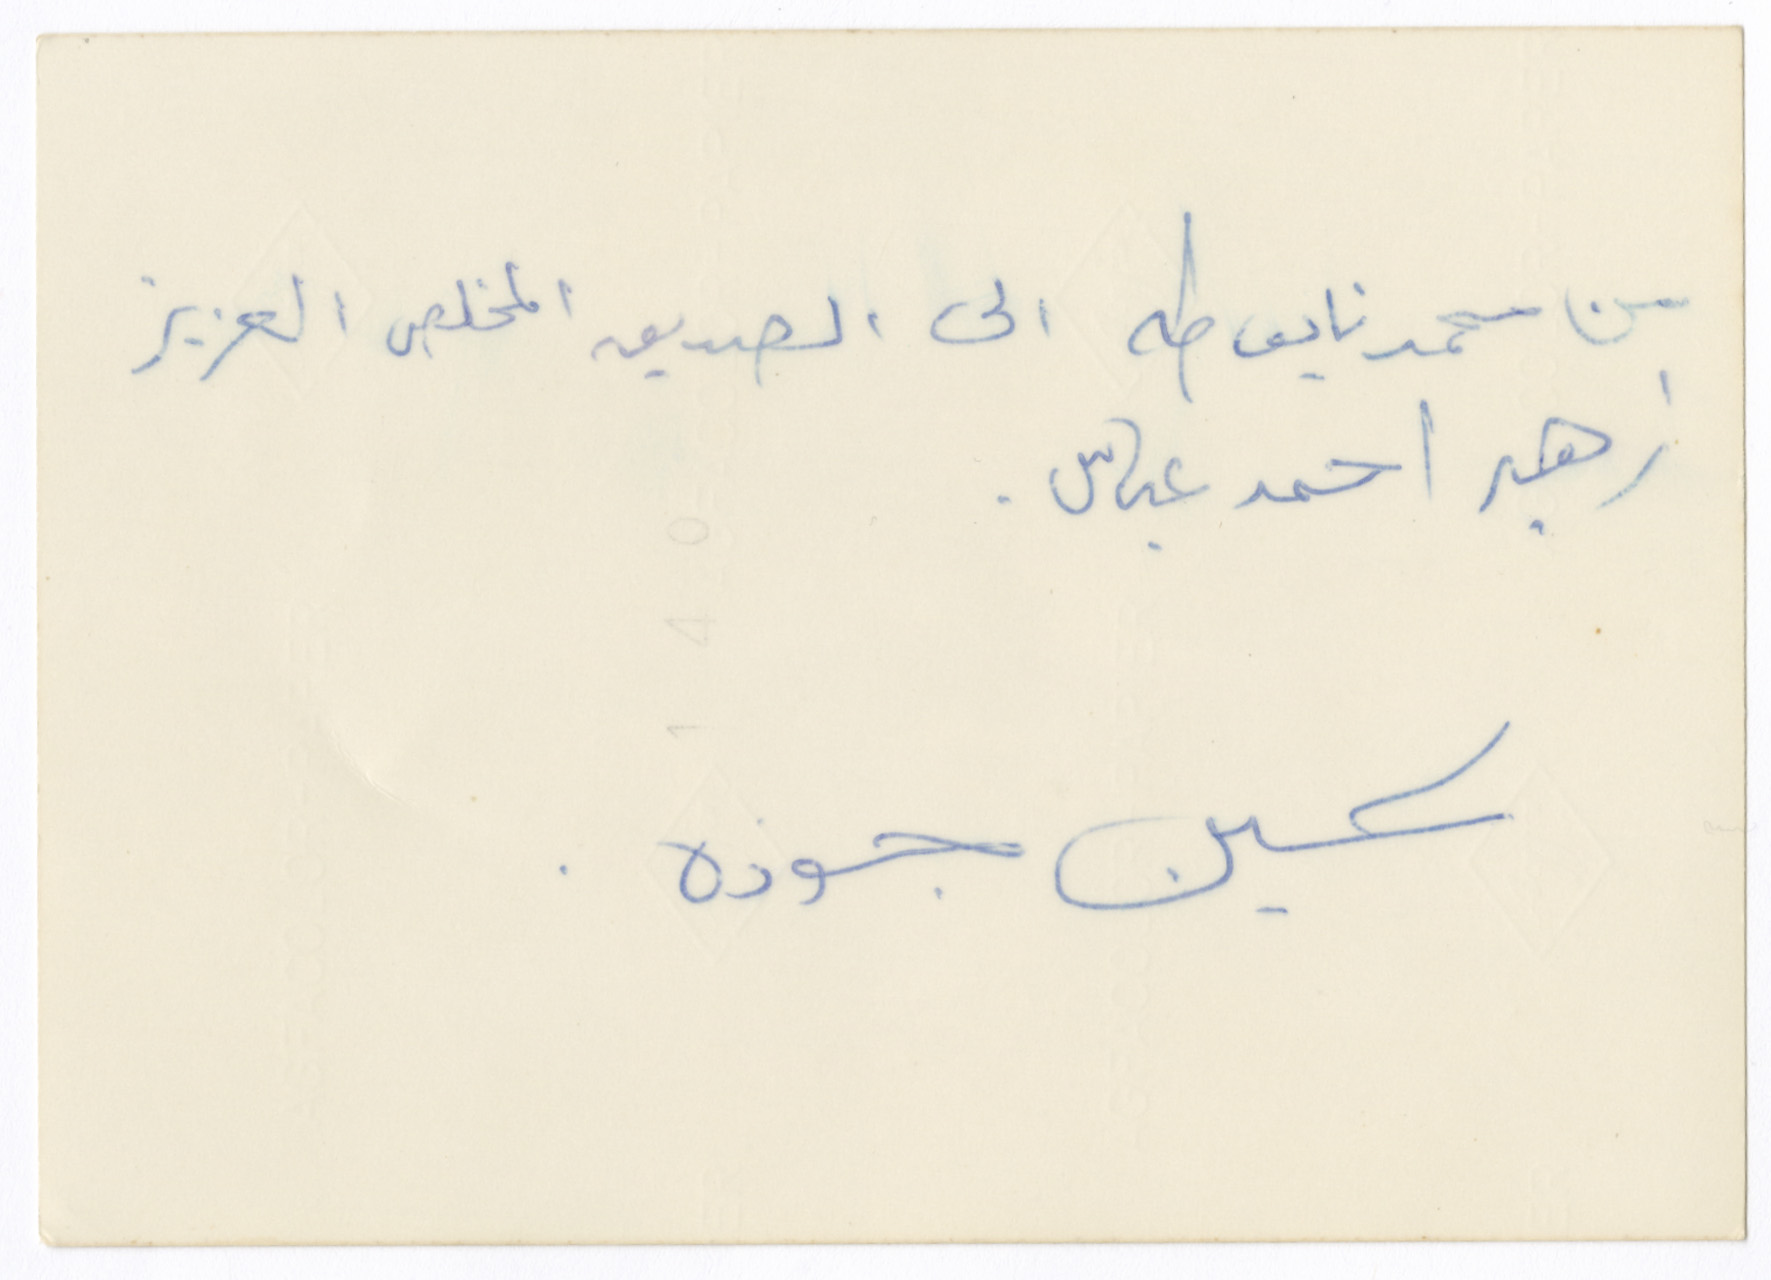 من محمد نايف طه الى الصديق المخلص العزيز
زهير احمد عباس .
حسين جوده .
1 4 0